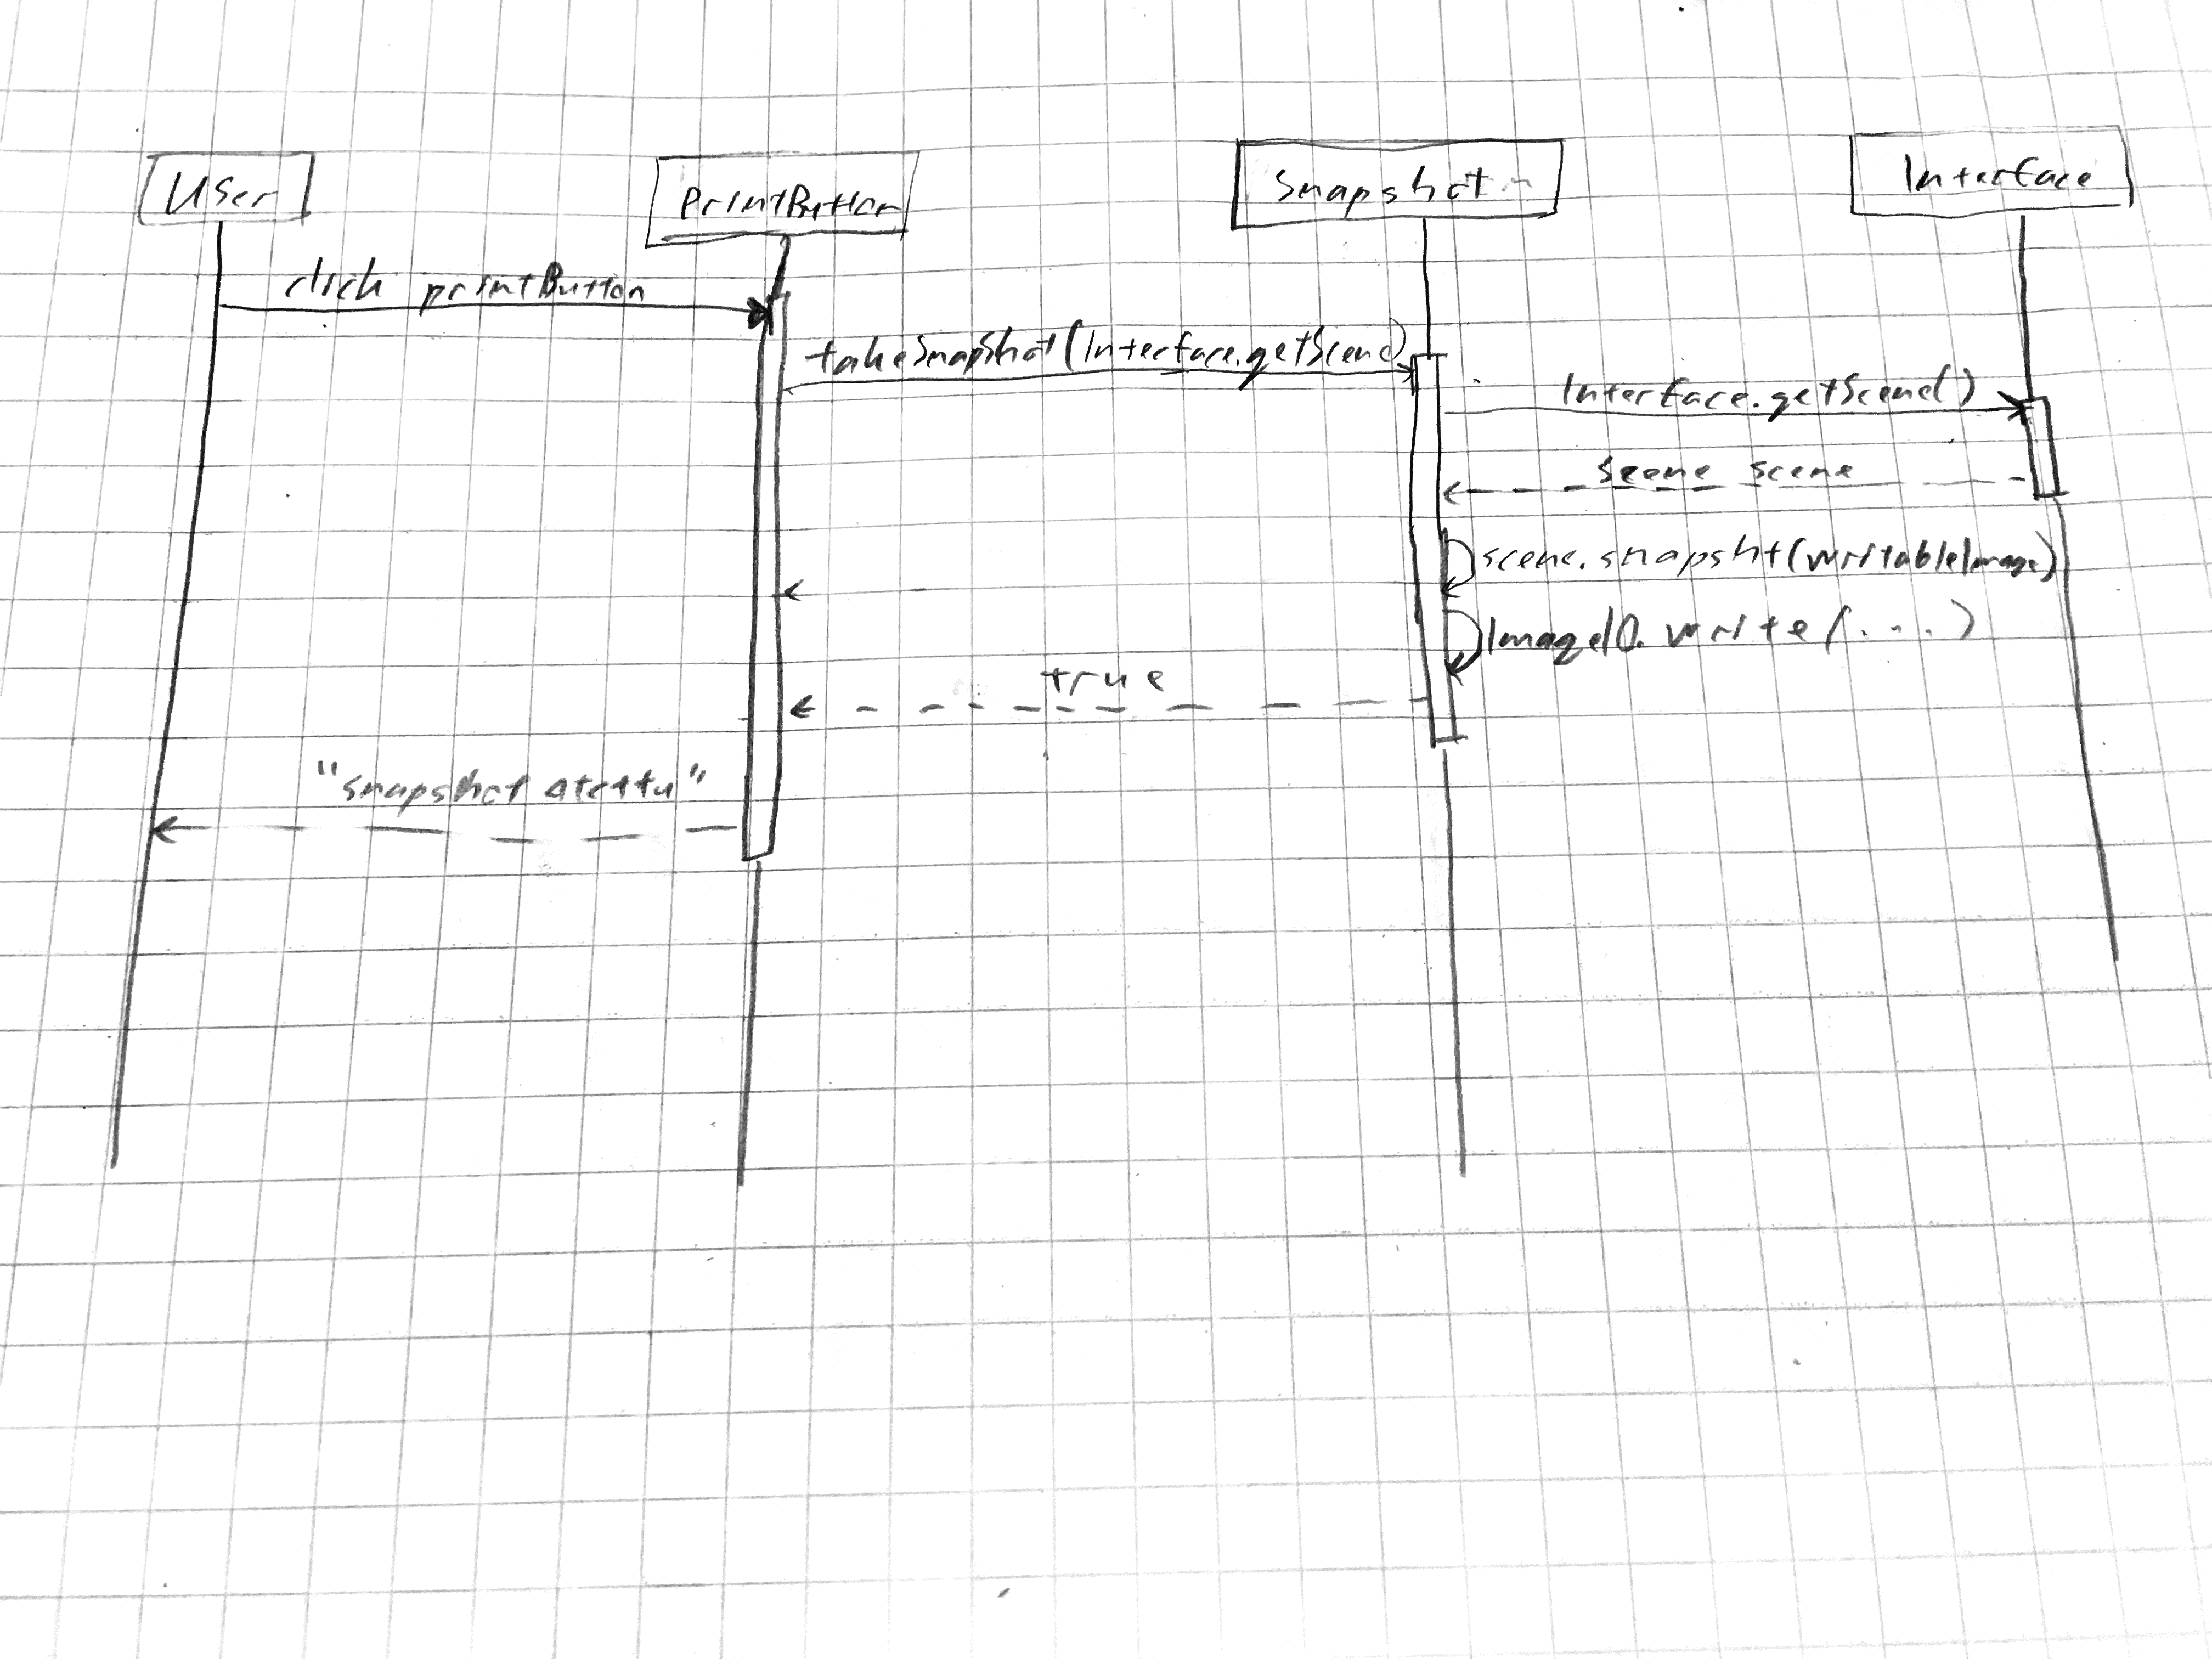 User
PrintButton
Snapshot
Interface
click printButton
takeSnapshot(Interface.getScene)
Interface.getScene()
scene scene
scene.snapsht(writableImage)
ImageIO.write(...)
true
"snapshot otettu"